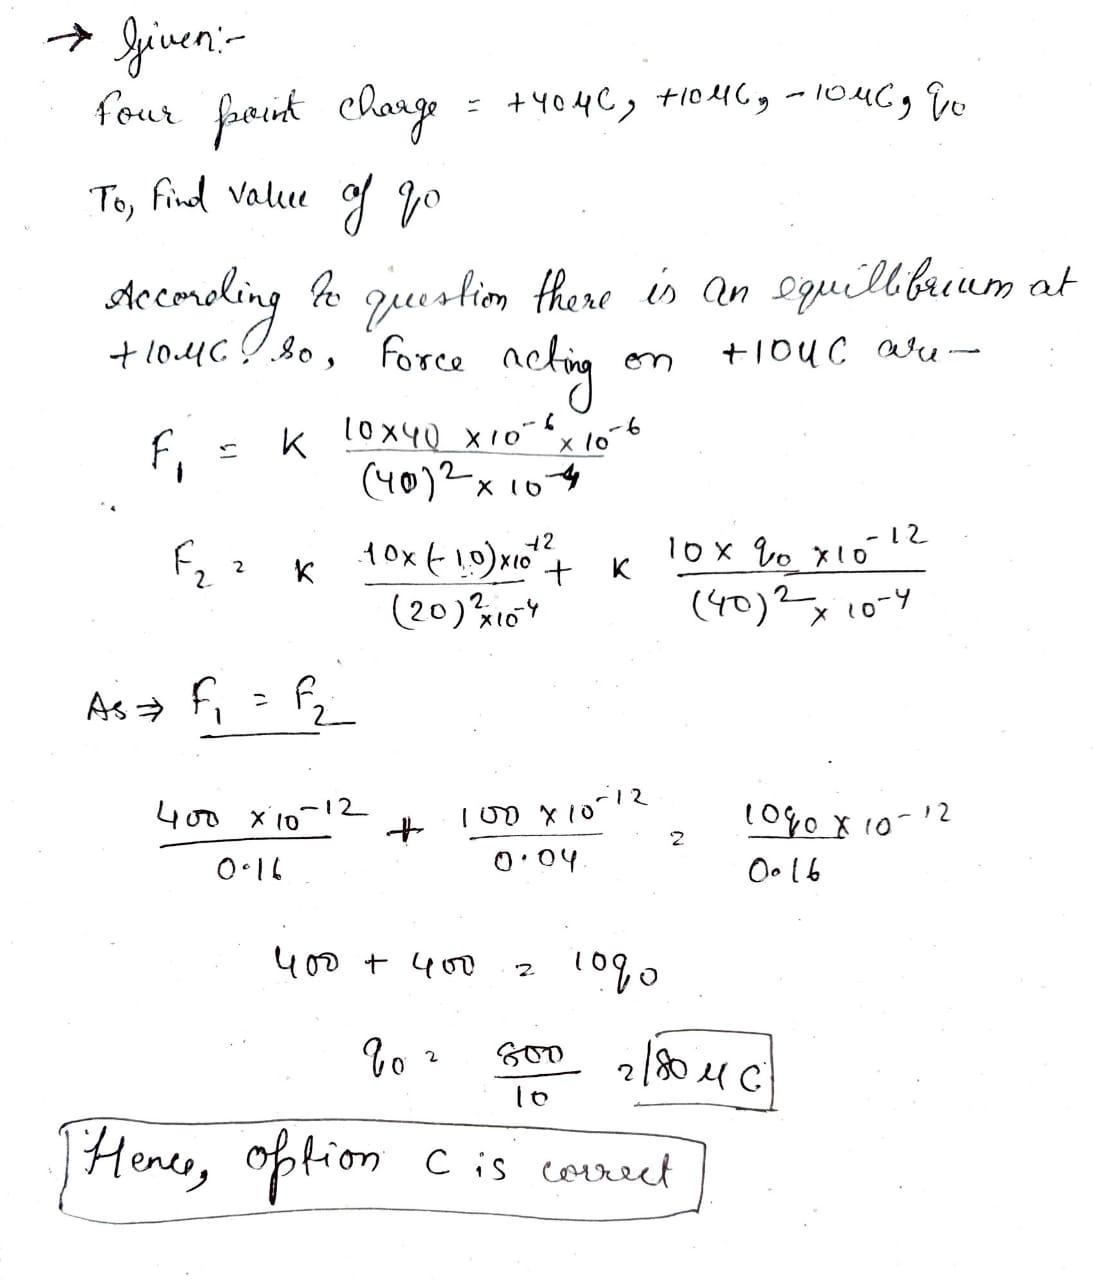 → Given:-
four point charge = +40μC, +10μC, -10μC, q0
To, find value of q0
According to question there is an equillibrium at
+10μC. so, force acting on +10μC are —
F1 = K (10×40 ×10^-6 × 10^-6) / ((40)^2 × 10^-4)
F2 = K (10×(-10)×10^-12) / ((20)^2 ×10^-4) + K (10 × q0 ×10^-12) / ((40)^2 × 10^-4)
As ⇒ F1 = F2
(400 ×10^-12) / 0.16 + (100 × 10^-12) / 0.04 = (10q0 × 10^-12) / 0.16
400 + 400 = 10q0
q0 = 800 / 10 = 80 μC
Hence, option C is correct